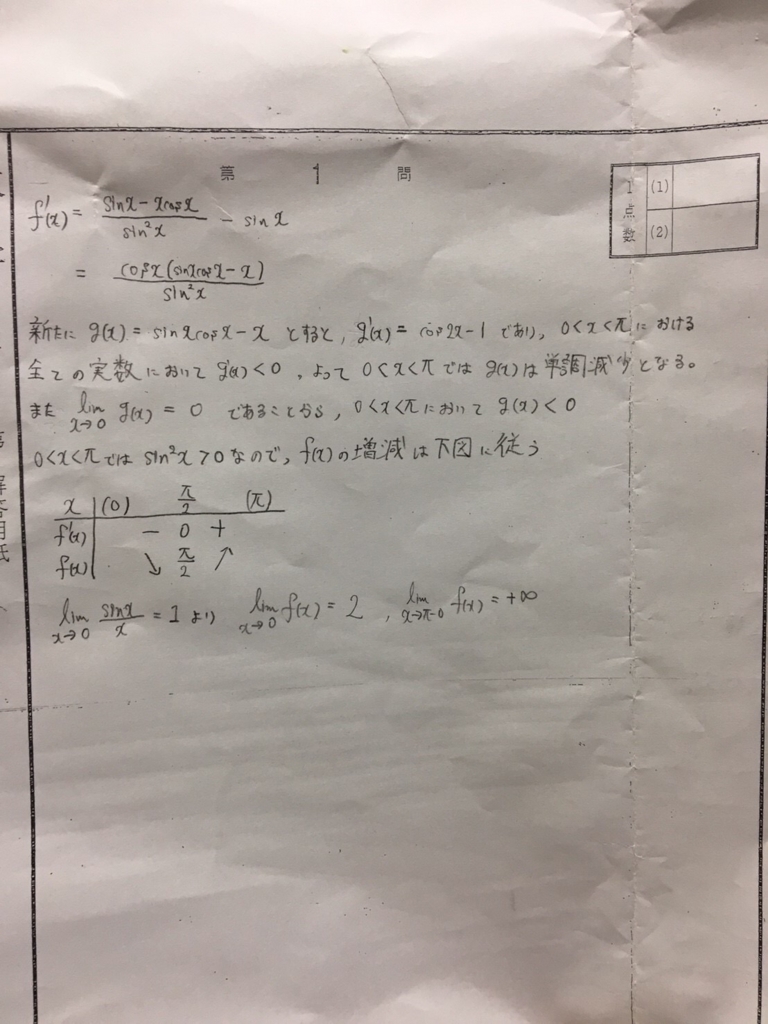 第 1 問
1 点 数 (1) (2)
f'(x) = (sin x − x cos x)/(sin²x) − sin x
= cos x (sin x cos x − x)/(sin²x)
新たに g(x) = sin x cos x − x とすると, g'(x) = cos 2x − 1 であり, 0 < x < π における
全ての実数において g'(x) < 0 , よって 0 < x < π では g(x) は単調減少となる。
また lim_{x→0} g(x) = 0 であることから, 0 < x < π において g(x) < 0
0 < x < π では sin²x > 0 なので, f(x) の増減は下図に従う
x | (0) π/2 (π)
f'(x) | − 0 +
f(x) | ↘ π/2 ↗
lim_{x→0} sin x/x = 1 より lim_{x→0} f(x) = 2 , lim_{x→π−0} f(x) = +∞